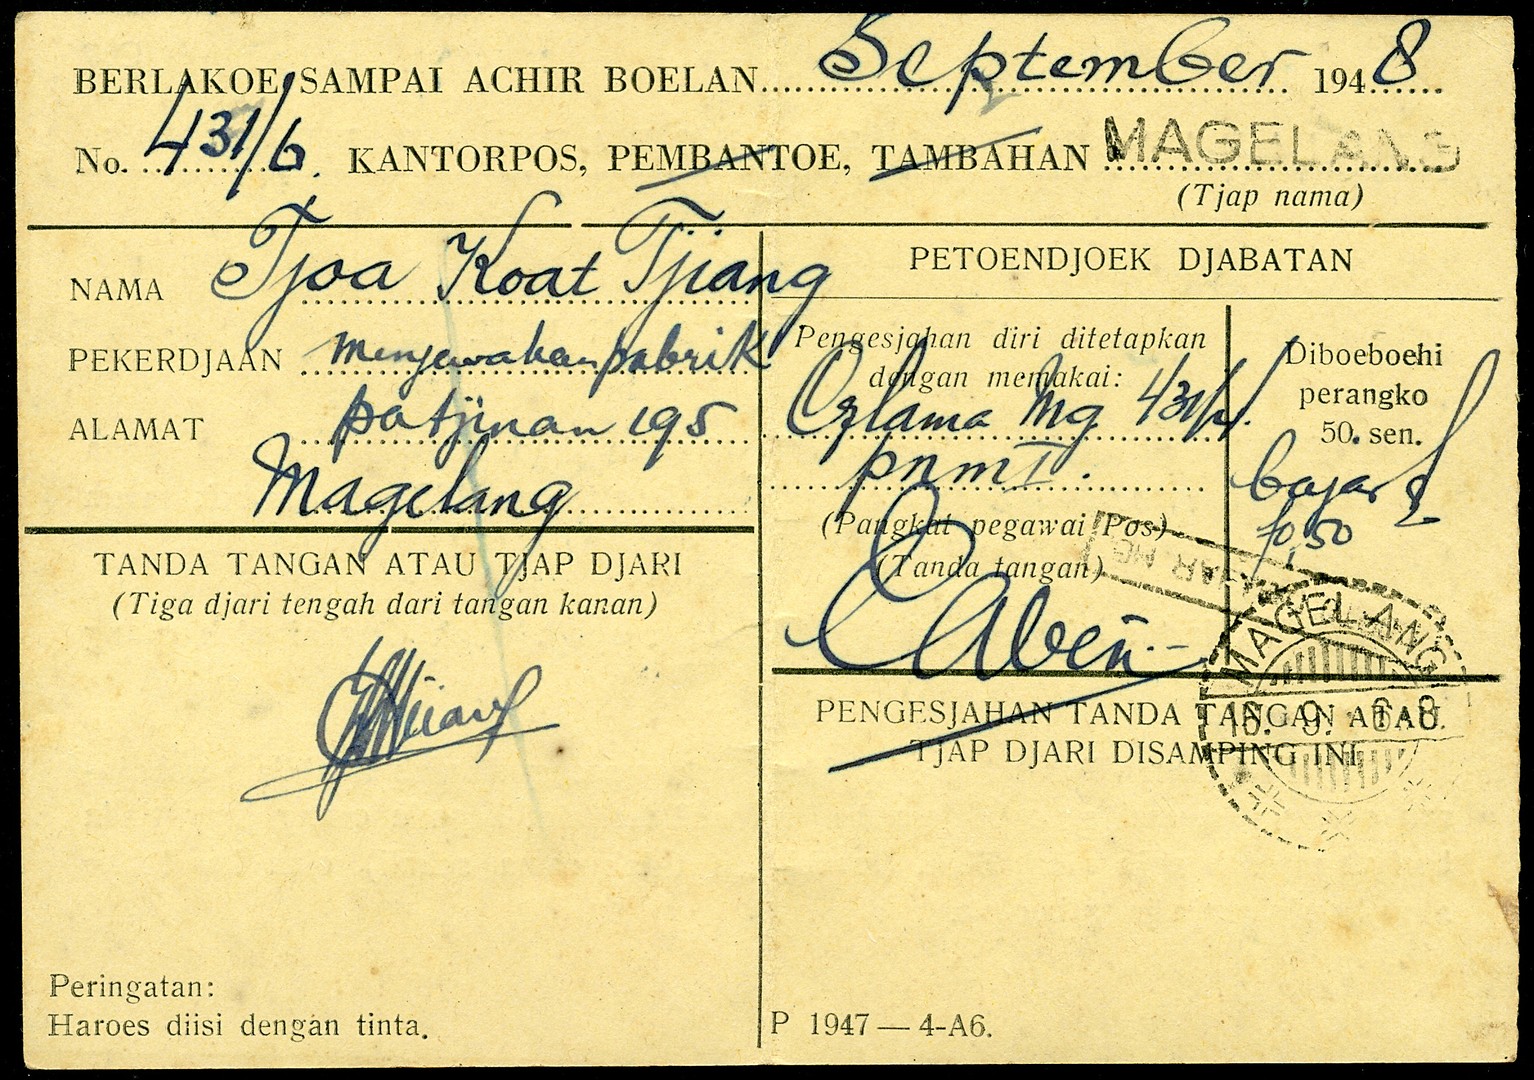 BERLAKOE SAMPAI ACHIR BOELAN September 1948
No. 431/6. KANTORPOS, PEMBANTOE, TAMBAHAN MAGELANG
(Tjap nama)
NAMA Tjoa Koat Tjiang
PEKERDJAAN menjewakan pabrik
ALAMAT patjinan 195
Magelang
TANDA TANGAN ATAU TJAP DJARI
(Tiga djari tengah dari tangan kanan)
Peringatan:
Haroes diisi dengan tinta.
PETOENDJOEK DJABATAN
Pengesjahan diri ditetapkan
dengan memakai:
Mg 431/
pnm I.
(Pangkat pegawai Pos)
(Tanda tangan)
Diboeboehi
perangko
50. sen.
bajar
f0,50
MAGELANG
16. 9. 6-8
PENGESJAHAN TANDA TANGAN ATAU
TJAP DJARI DISAMPING INI
P 1947 — 4-A6.